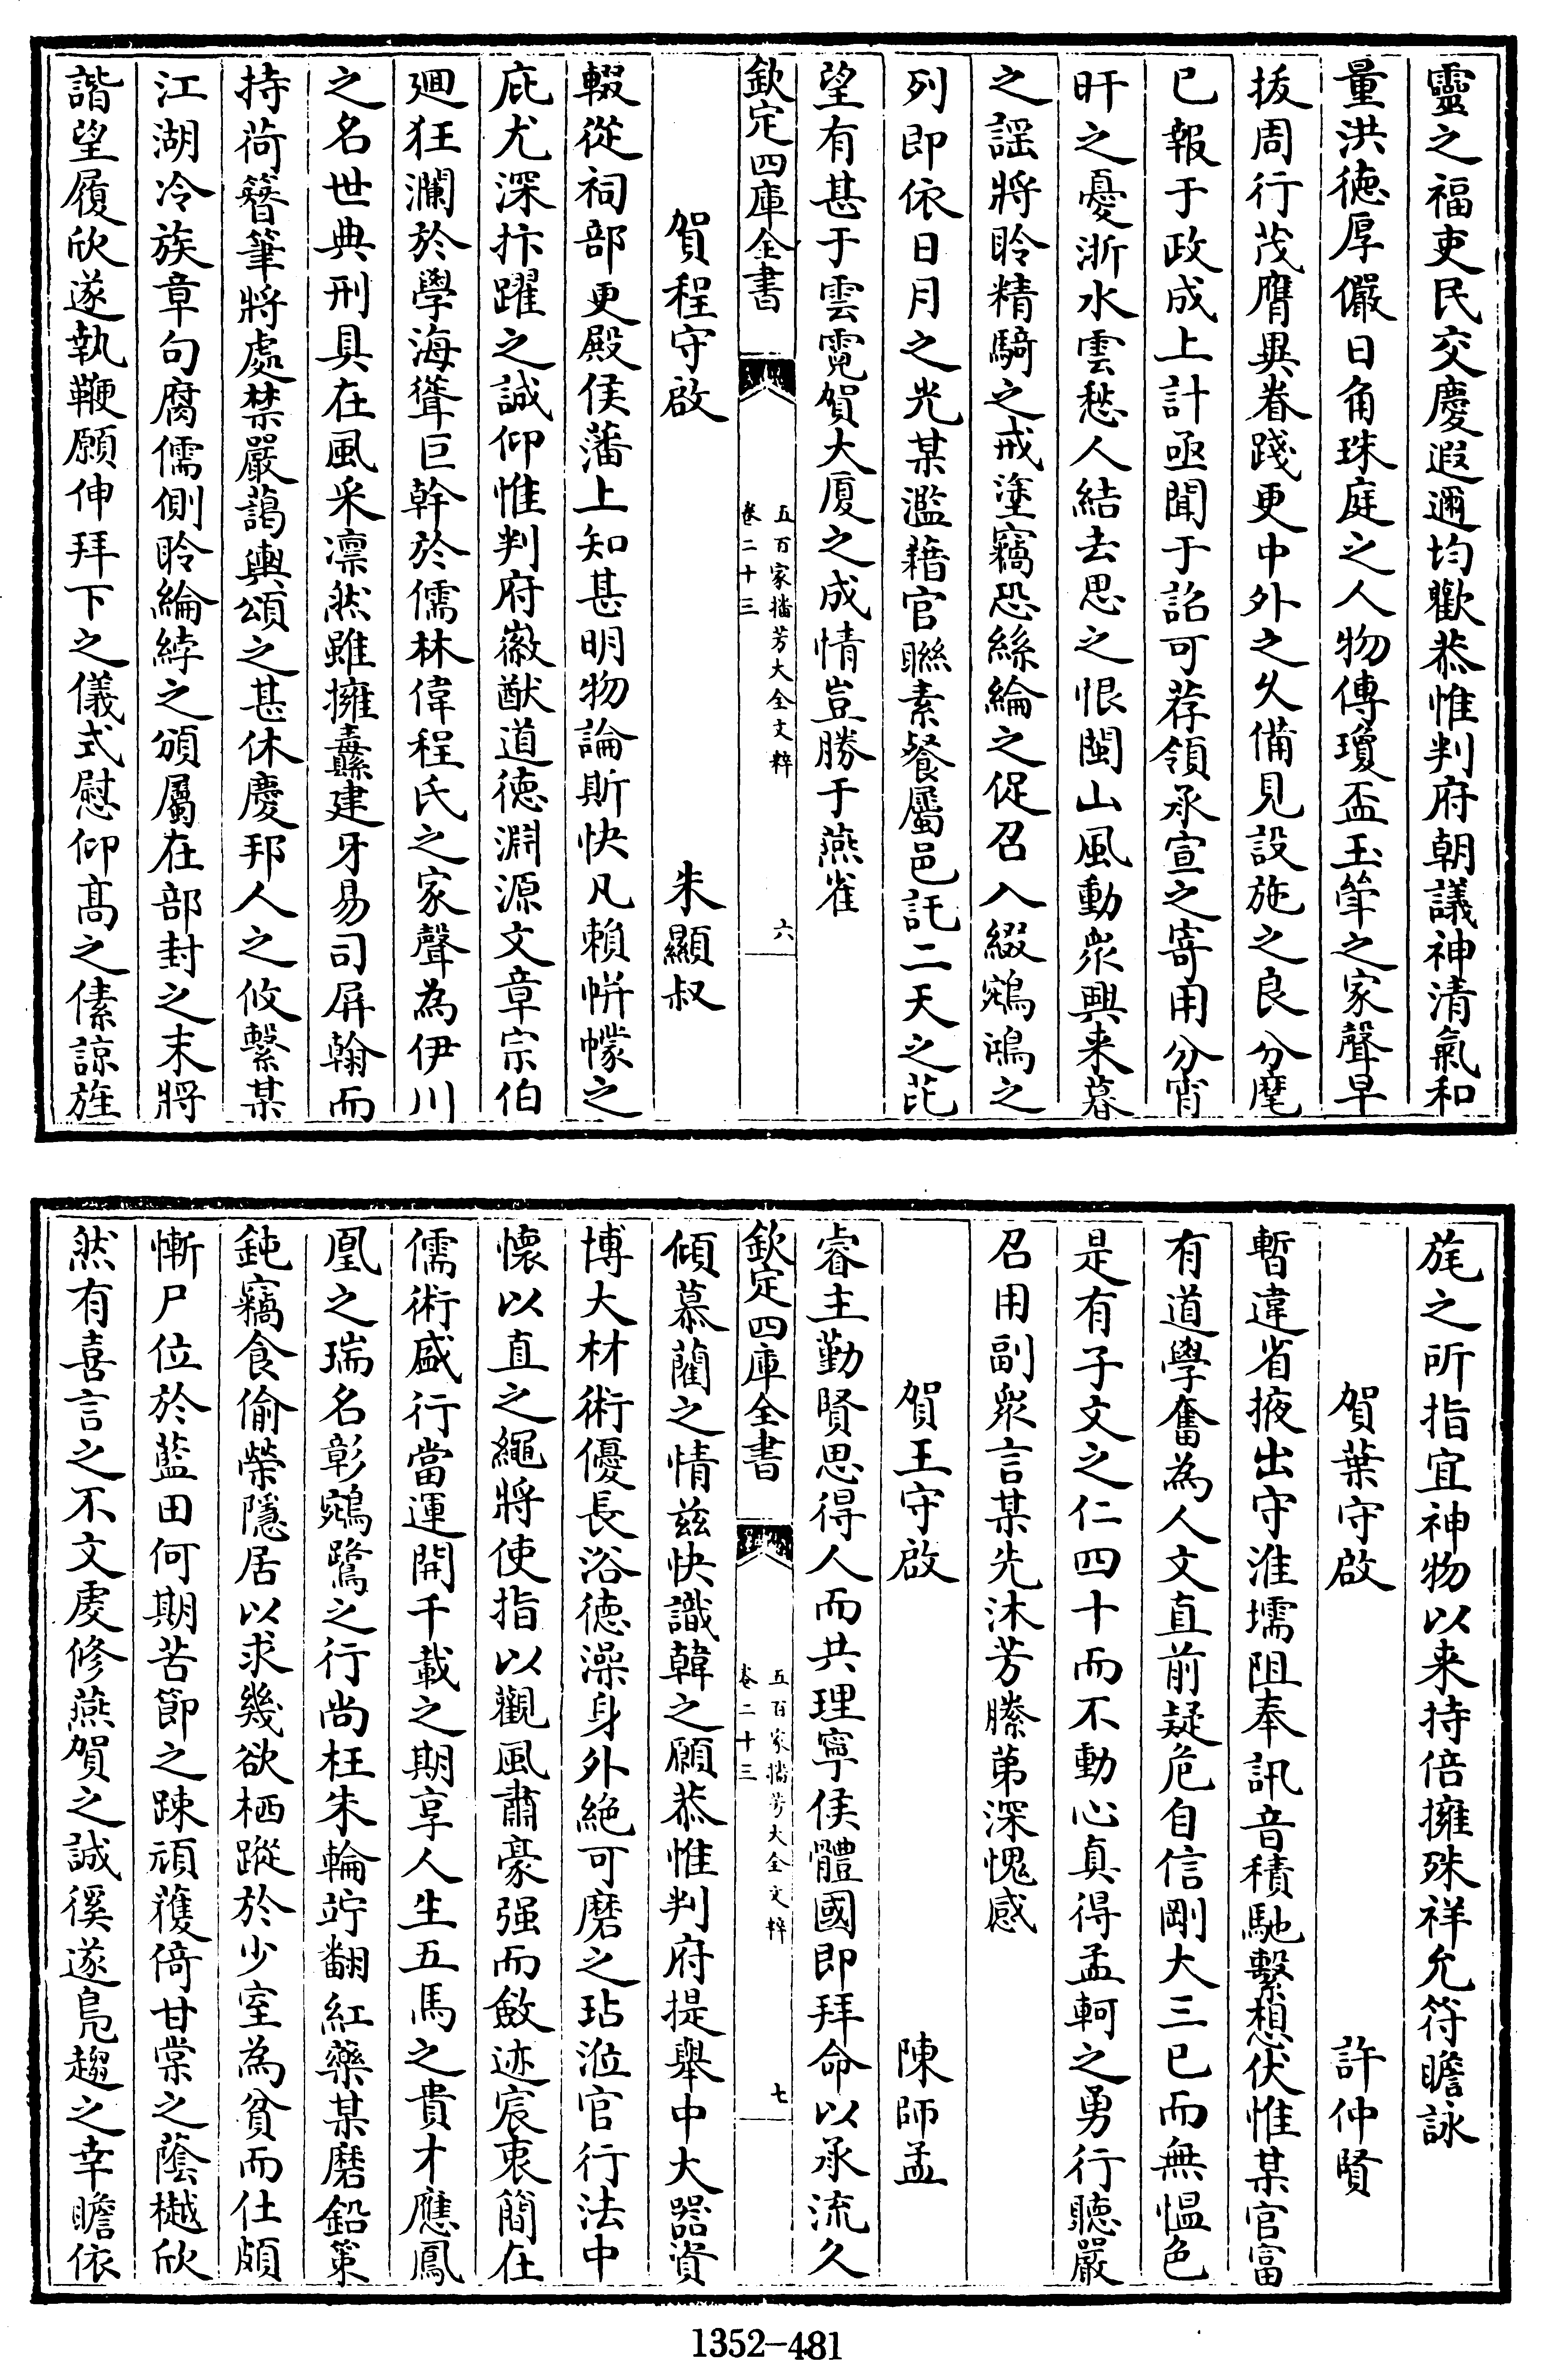 靈之福吏民交慶遐邇均歡恭惟判府朝議神清氣和
量洪徳厚儼日角珠庭之人物傳瓊盃玉斝之家聲早
㧞周行茂膺異眷踐更中外之久備見設施之良分麾
已報于政成上計亟聞于詔可荐領承宣之寄用分宵
旰之憂浙水雲愁人結去思之恨閩山風動衆興来暮
之謡將聆精騎之戒塗竊恐絲綸之促召入綴鵷鴻之
列即依日月之光某濫藉官聯素餐屬邑託二天之芘
望有甚于雲霓賀大厦之成情豈勝于燕雀
欽定四庫全書
五百家播芳大全文粹
卷二十三
六
賀程守啟　朱顯叔
輟從祠部更殿侯藩上知甚明物論斯快凡賴帡幪之
庇尤深抃躍之誠仰惟判府徽猷道徳淵源文章宗伯
廻狂瀾於學海聳巨幹於儒林偉程氏之家聲為伊川
之名世典刑具在風采凛然雖擁纛建牙易司屏翰而
持荷簮筆將處禁嚴藹輿頌之甚休慶邦人之攸繫某
江湖冷族章句腐儒側聆綸綍之頒屬在部封之末將
諧望履欣遂執鞭願伸拜下之儀式慰仰髙之傃諒旌
旄之所指宜神物以来持倍擁殊祥允符瞻詠
賀葉守啟　許仲賢
暫違省掖出守淮壖阻奉訊音積馳繫想伏惟某官富
有道學奮為人文直前疑危自信剛大三已而無愠色
是有子文之仁四十而不動心真得孟軻之勇行聽嚴
召用副衆言某先沐芳縢苐深愧感
賀王守啟　陳師孟
睿主勤賢思得人而共理寧侯體國即拜命以承流久
欽定四庫全書
五百家播芳大全文粹
卷二十三
七
傾慕藺之情兹快識韓之願恭惟判府提舉中大器資
博大材術優長浴徳澡身外絶可磨之玷涖官行法中
懐以直之繩將使指以觀風肅豪强而斂迹宸衷簡在
儒術盛行當運開千載之期享人生五馬之貴才應鳳
凰之瑞名彰鵷鷺之行尚枉朱輪竚翻紅藥某磨鉛策
鈍竊食偷榮隱居以求幾欲栖蹤於少室為貧而仕頗
慚尸位於藍田何期苦節之踈頑獲倚甘棠之蔭樾欣
然有喜言之不文䖍修燕賀之誠徯遂鳬趨之幸瞻依
1352-481